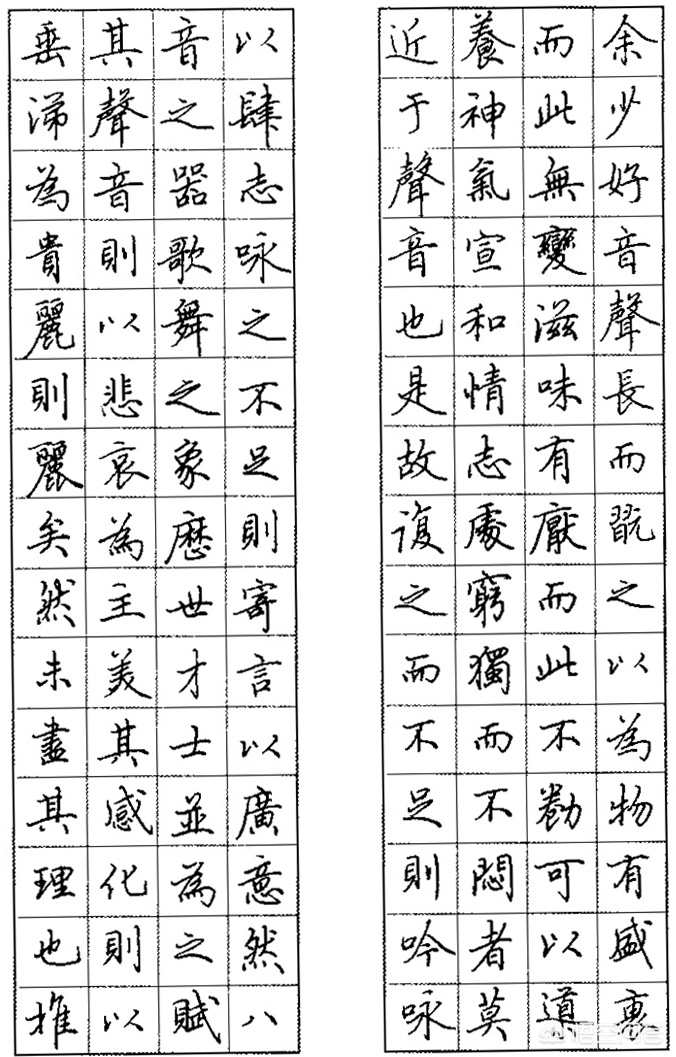 余少好音聲長而翫之以為物有盛衰
而此無變滋味有厭而此不勌可以道
養神氣宣和情志處窮獨而不悶者莫
近于聲音也是故復之而不足則吟咏
以肆志咏之不足則寄言以廣意然八
音之器歌舞之象歷世才士並為之賦
其聲音則以悲哀為主美其感化則以
垂涕為貴麗則麗矣然未盡其理也推